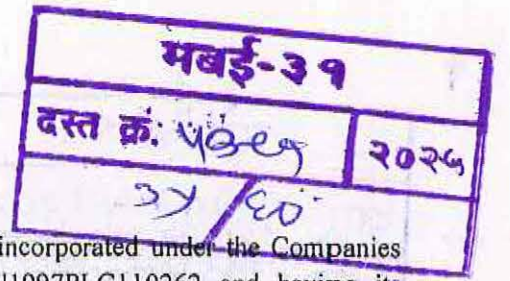 मबई-३१
दस्त क्रं: २०२५
/६०
incorporated under the Companies
1997PLC110262 and having its